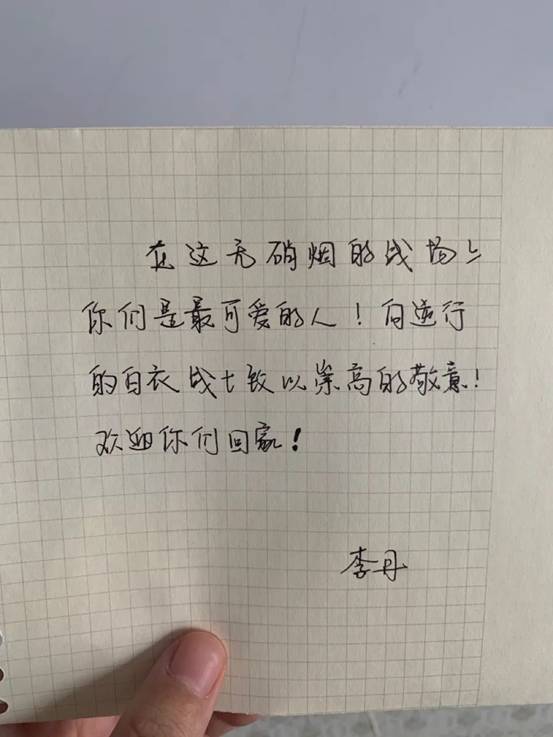 在这无硝烟的战场上
你们是最可爱的人！向逆行
的白衣战士致以崇高的敬意！
欢迎你们回家！
李丹